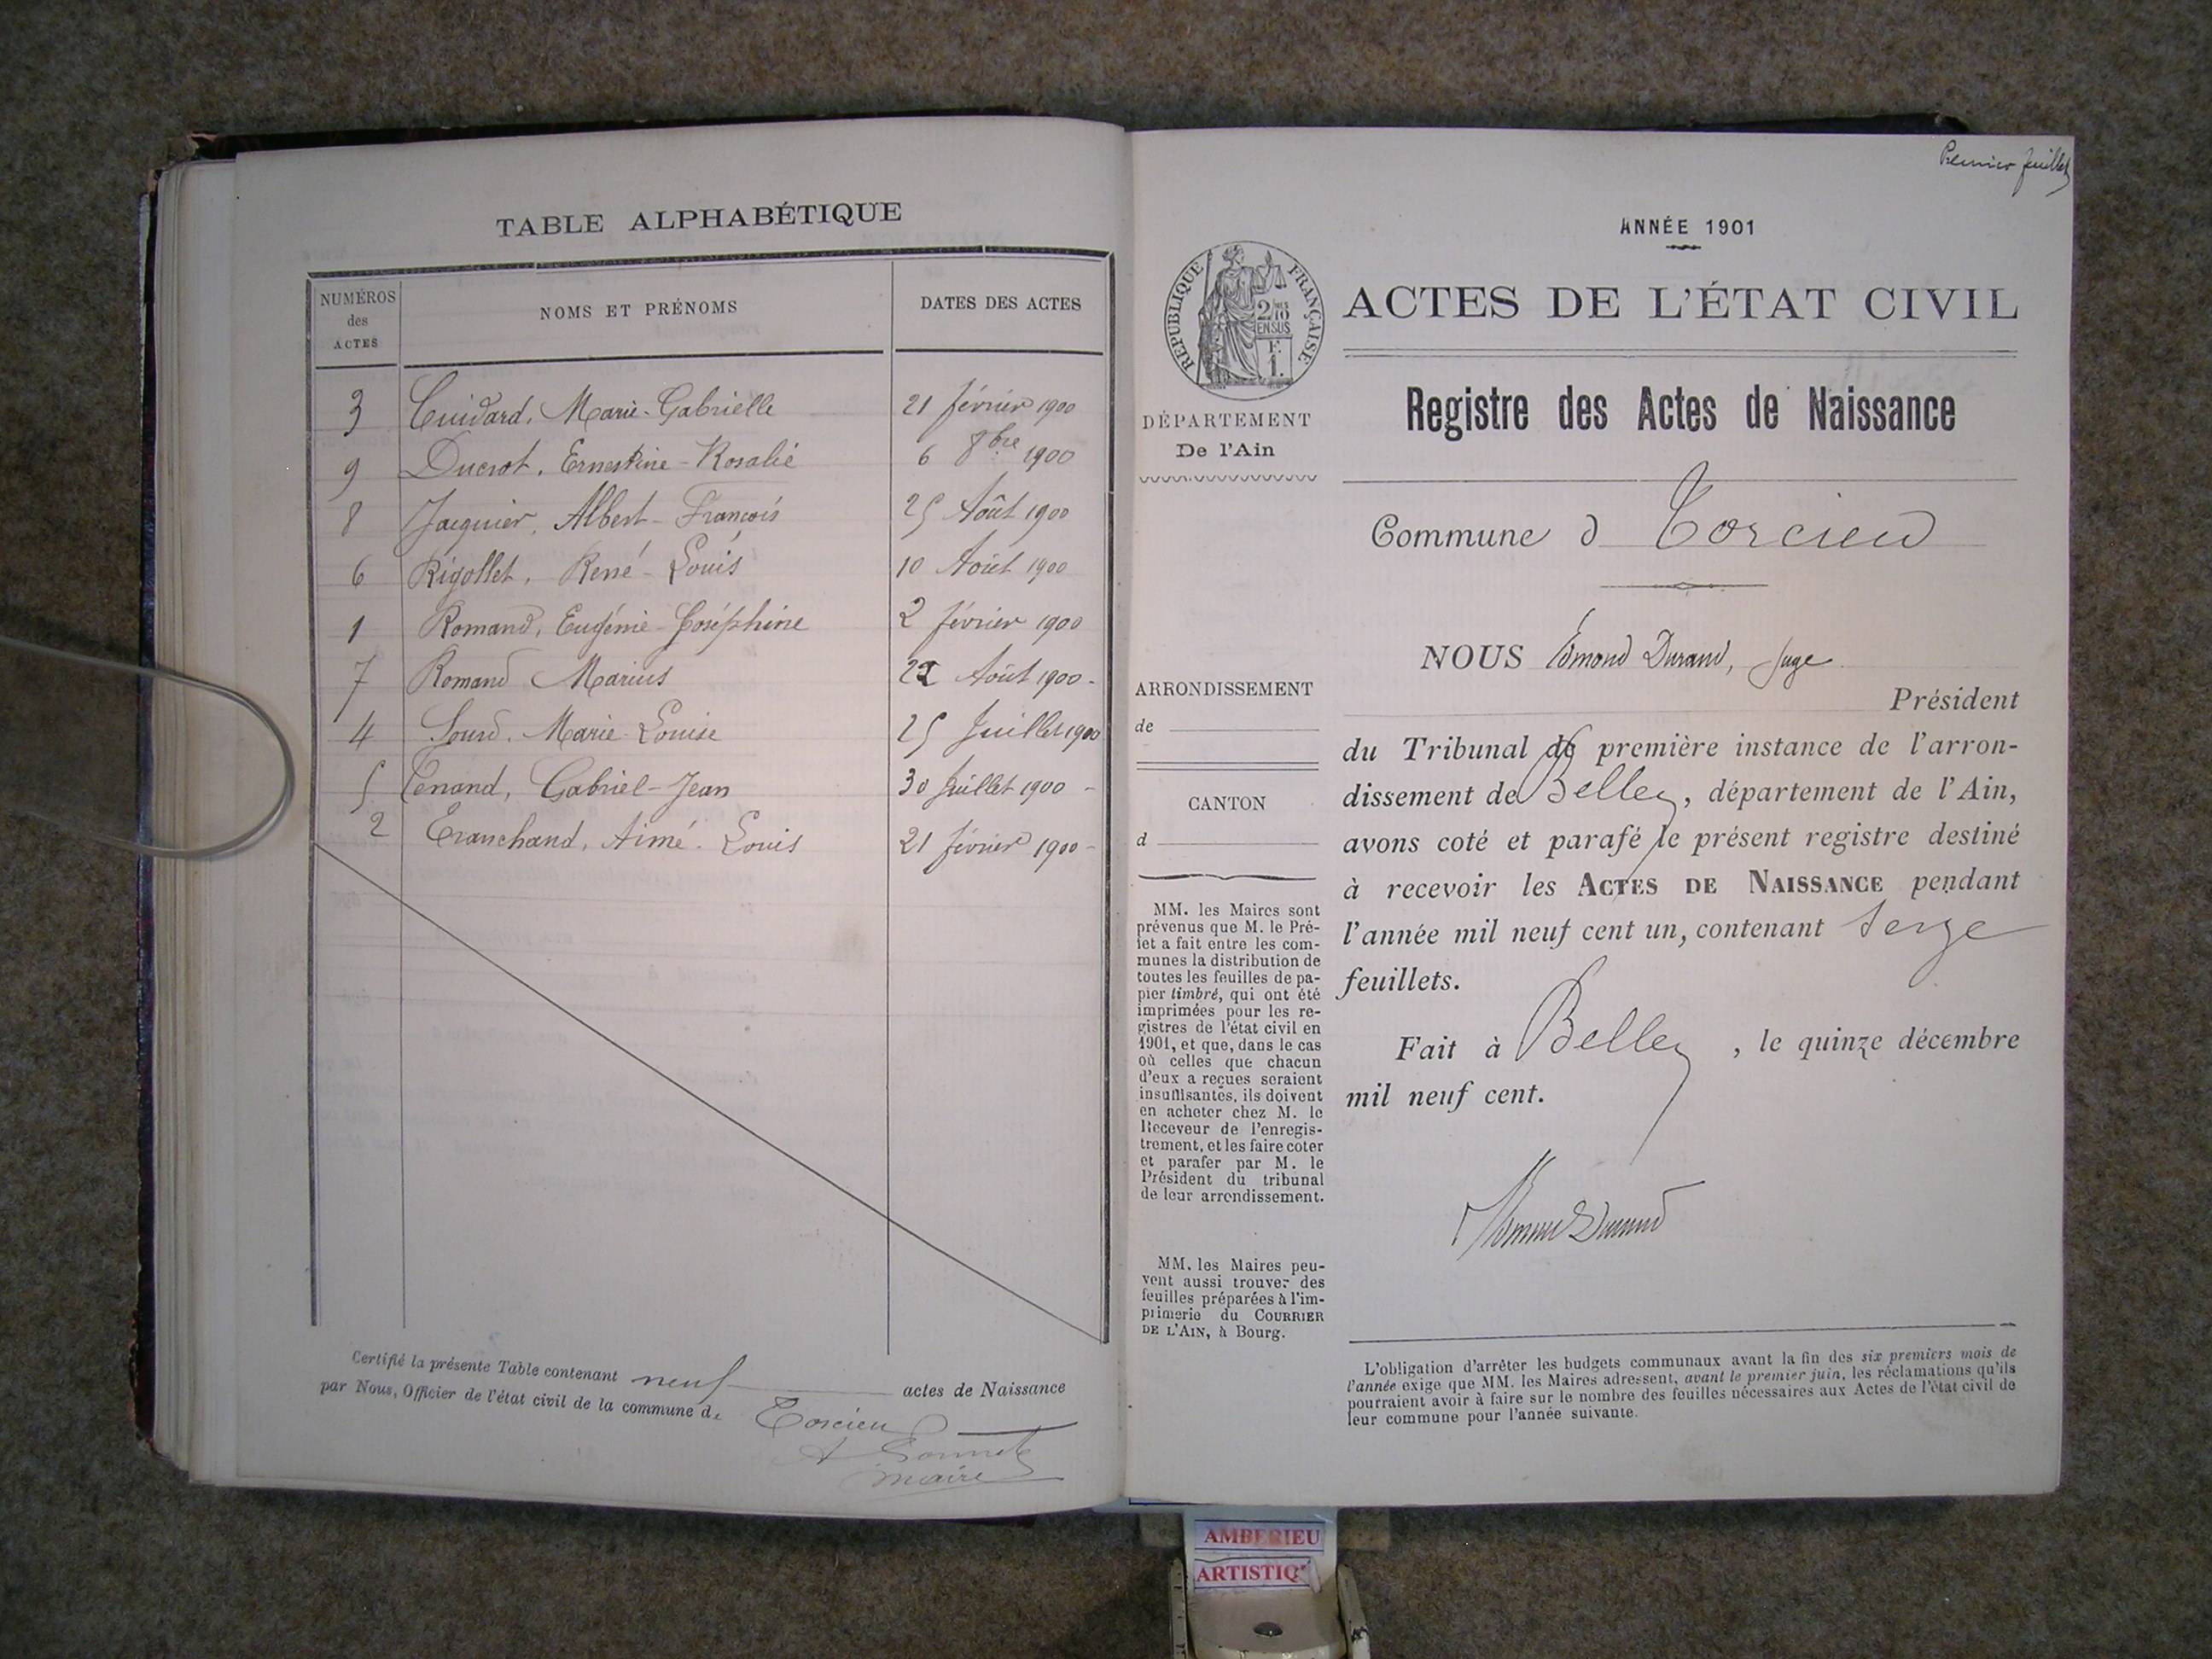 TABLE ALPHABÉTIQUE
NUMÉROS des ACTES NOMS ET PRÉNOMS DATES DES ACTES
3 Cuidard, Marie-Gabrielle 21 février 1900
9 Ducrot, Ernestine-Rosalie 6 8bre 1900
8 Jacquier, Albert-François 25 Août 1900
6 Rigollet, René-Louis 10 Août 1900
1 Romand, Eugénie-Joséphine 2 février 1900
7 Romand Marius 22 Août 1900-
4 Sourd, Marie-Louise 25 Juillet 1900
5 Tenand, Gabriel-Jean 30 Juillet 1900-
2 Tranchand, Aimé-Louis 21 février 1900-
Certifié la présente Table contenant neuf actes de Naissance
par Nous, Officier de l'état civil de la commune de Torcieu
maire
Premier feuillet
ANNÉE 1901
RÉPUBLIQUE FRANÇAISE
2/10 EN SUS
F. 1.
ACTES DE L'ÉTAT CIVIL
DÉPARTEMENT
De l'Ain
Registre des Actes de Naissance
Commune d Torcieu
NOUS Edmond Durand, Juge
Président
du Tribunal de première instance de l'arron-
dissement de Belley, département de l'Ain,
avons coté et parafé le présent registre destiné
à recevoir les ACTES DE NAISSANCE pendant
l'année mil neuf cent un, contenant seize
feuillets.
Fait à Belley, le quinze décembre
mil neuf cent.
Edmond Durand
ARRONDISSEMENT
de
CANTON
d
MM. les Maires sont
prévenus que M. le Pré-
fet a fait entre les com-
munes la distribution de
toutes les feuilles de pa-
pier timbré, qui ont été
imprimées pour les re-
gistres de l'état civil en
1901, et que, dans le cas
où celles que chacun
d'eux a reçues seraient
insuffisantes, ils doivent
en acheter chez M. le
Receveur de l'enregis-
trement, et les faire coter
et parafer par M. le
Président du tribunal
de leur arrondissement.
MM. les Maires peu-
vent aussi trouver des
feuilles préparées à l'im-
primerie du COURRIER
DE L'AIN, à Bourg.
L'obligation d'arrêter les budgets communaux avant la fin des six premiers mois de
l'année exige que MM. les Maires adressent, avant le premier juin, les réclamations qu'ils
pourraient avoir à faire sur le nombre des feuilles nécessaires aux Actes de l'état civil de
leur commune pour l'année suivante.
AMBERIEU
ARTISTIQ